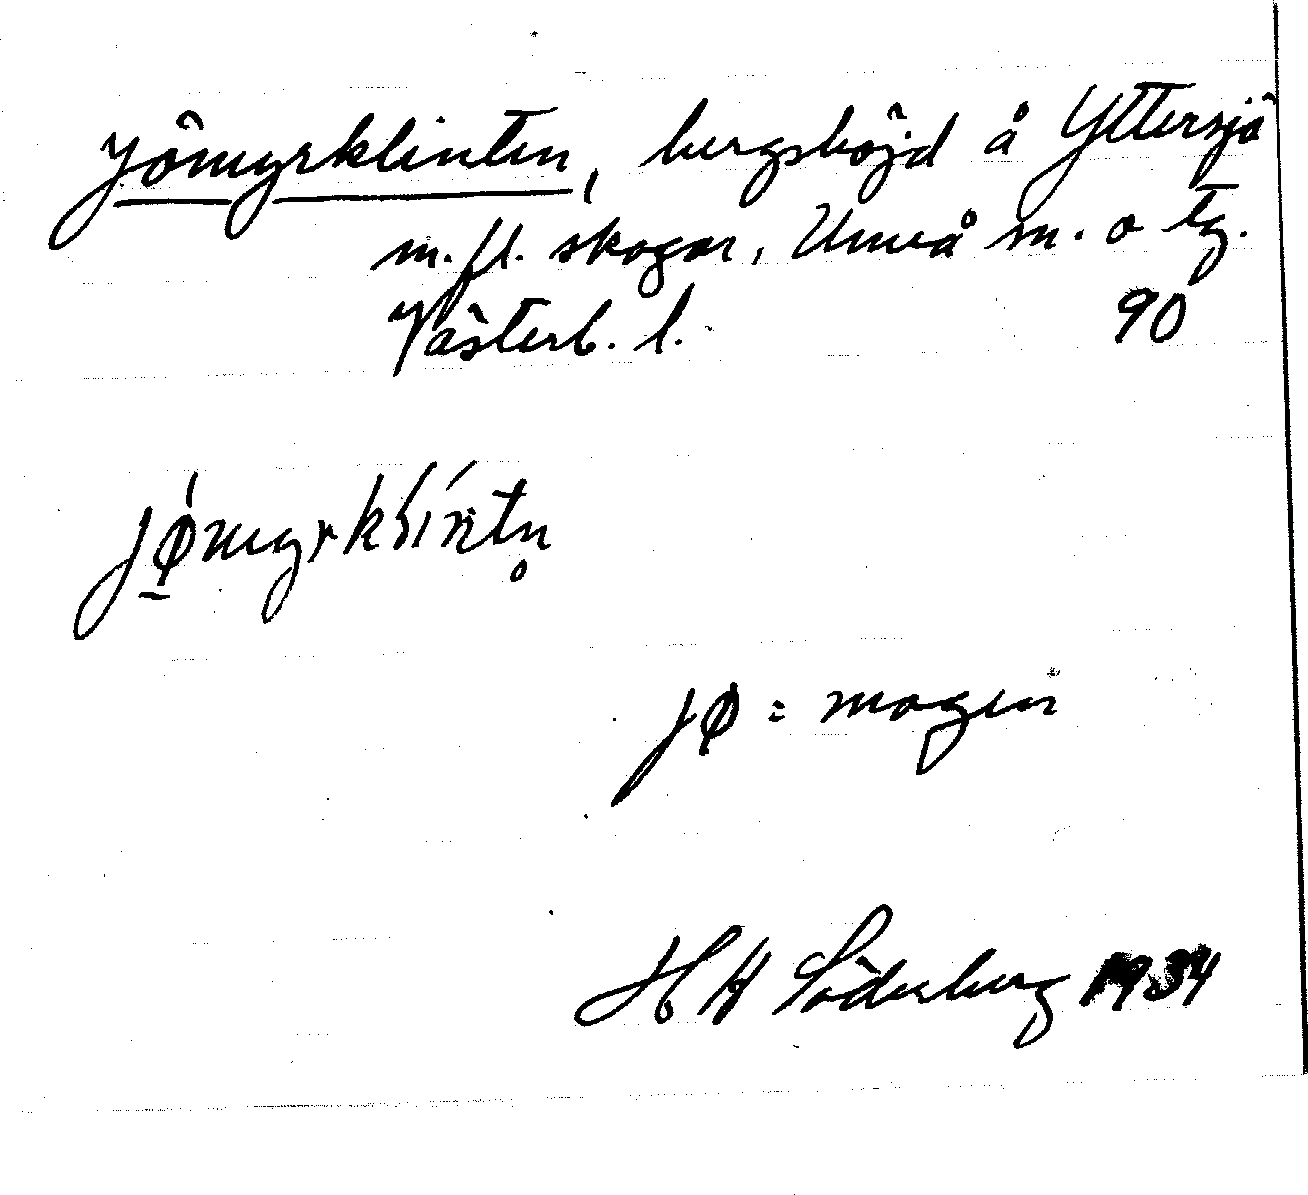 Jömyrklinten, bergshöjd å Yttersjö
m. fl. skogar, Umeå sn. o tg.
Västerb. l. 90
jømyrklintn̥
jø = mogen
H Söderberg 1934